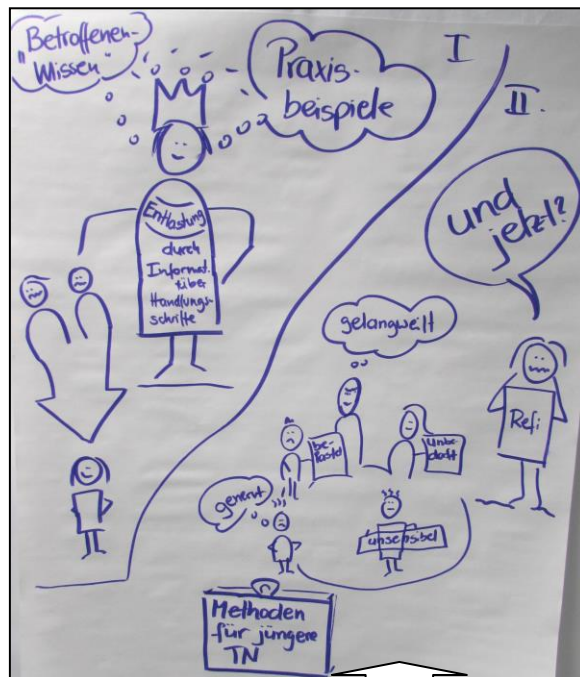 Betroffenen-
"Wissen"
Praxis-
beispiele
I
II.
Entlastung
durch
Informat.
über
Handlungs-
schritte
und
jetzt?
gelangweilt
Refi
be-
lastet
Unbe-
darft
genervt
unsensibel
Methoden
für jüngere
TN